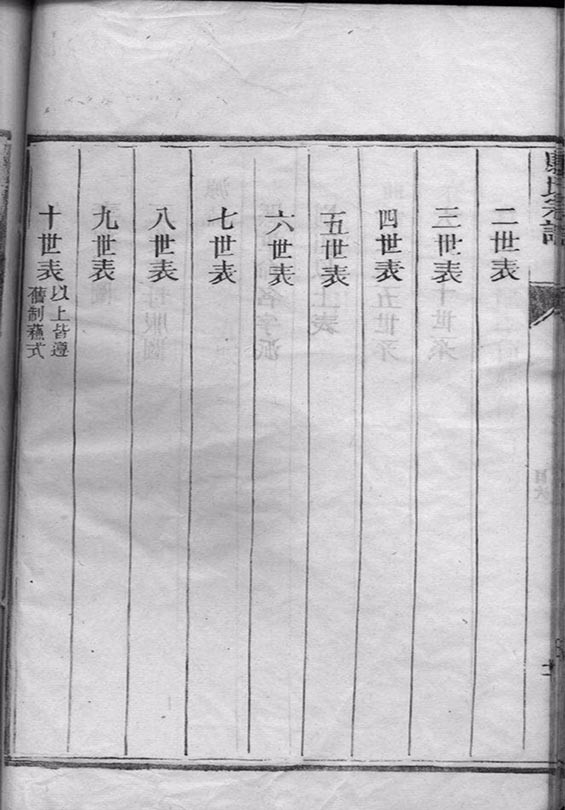 氏宗譜
二世表
三世表
四世表
五世表
六世表
七世表
八世表
九世表
十世表
以上皆遵
舊制蘇式